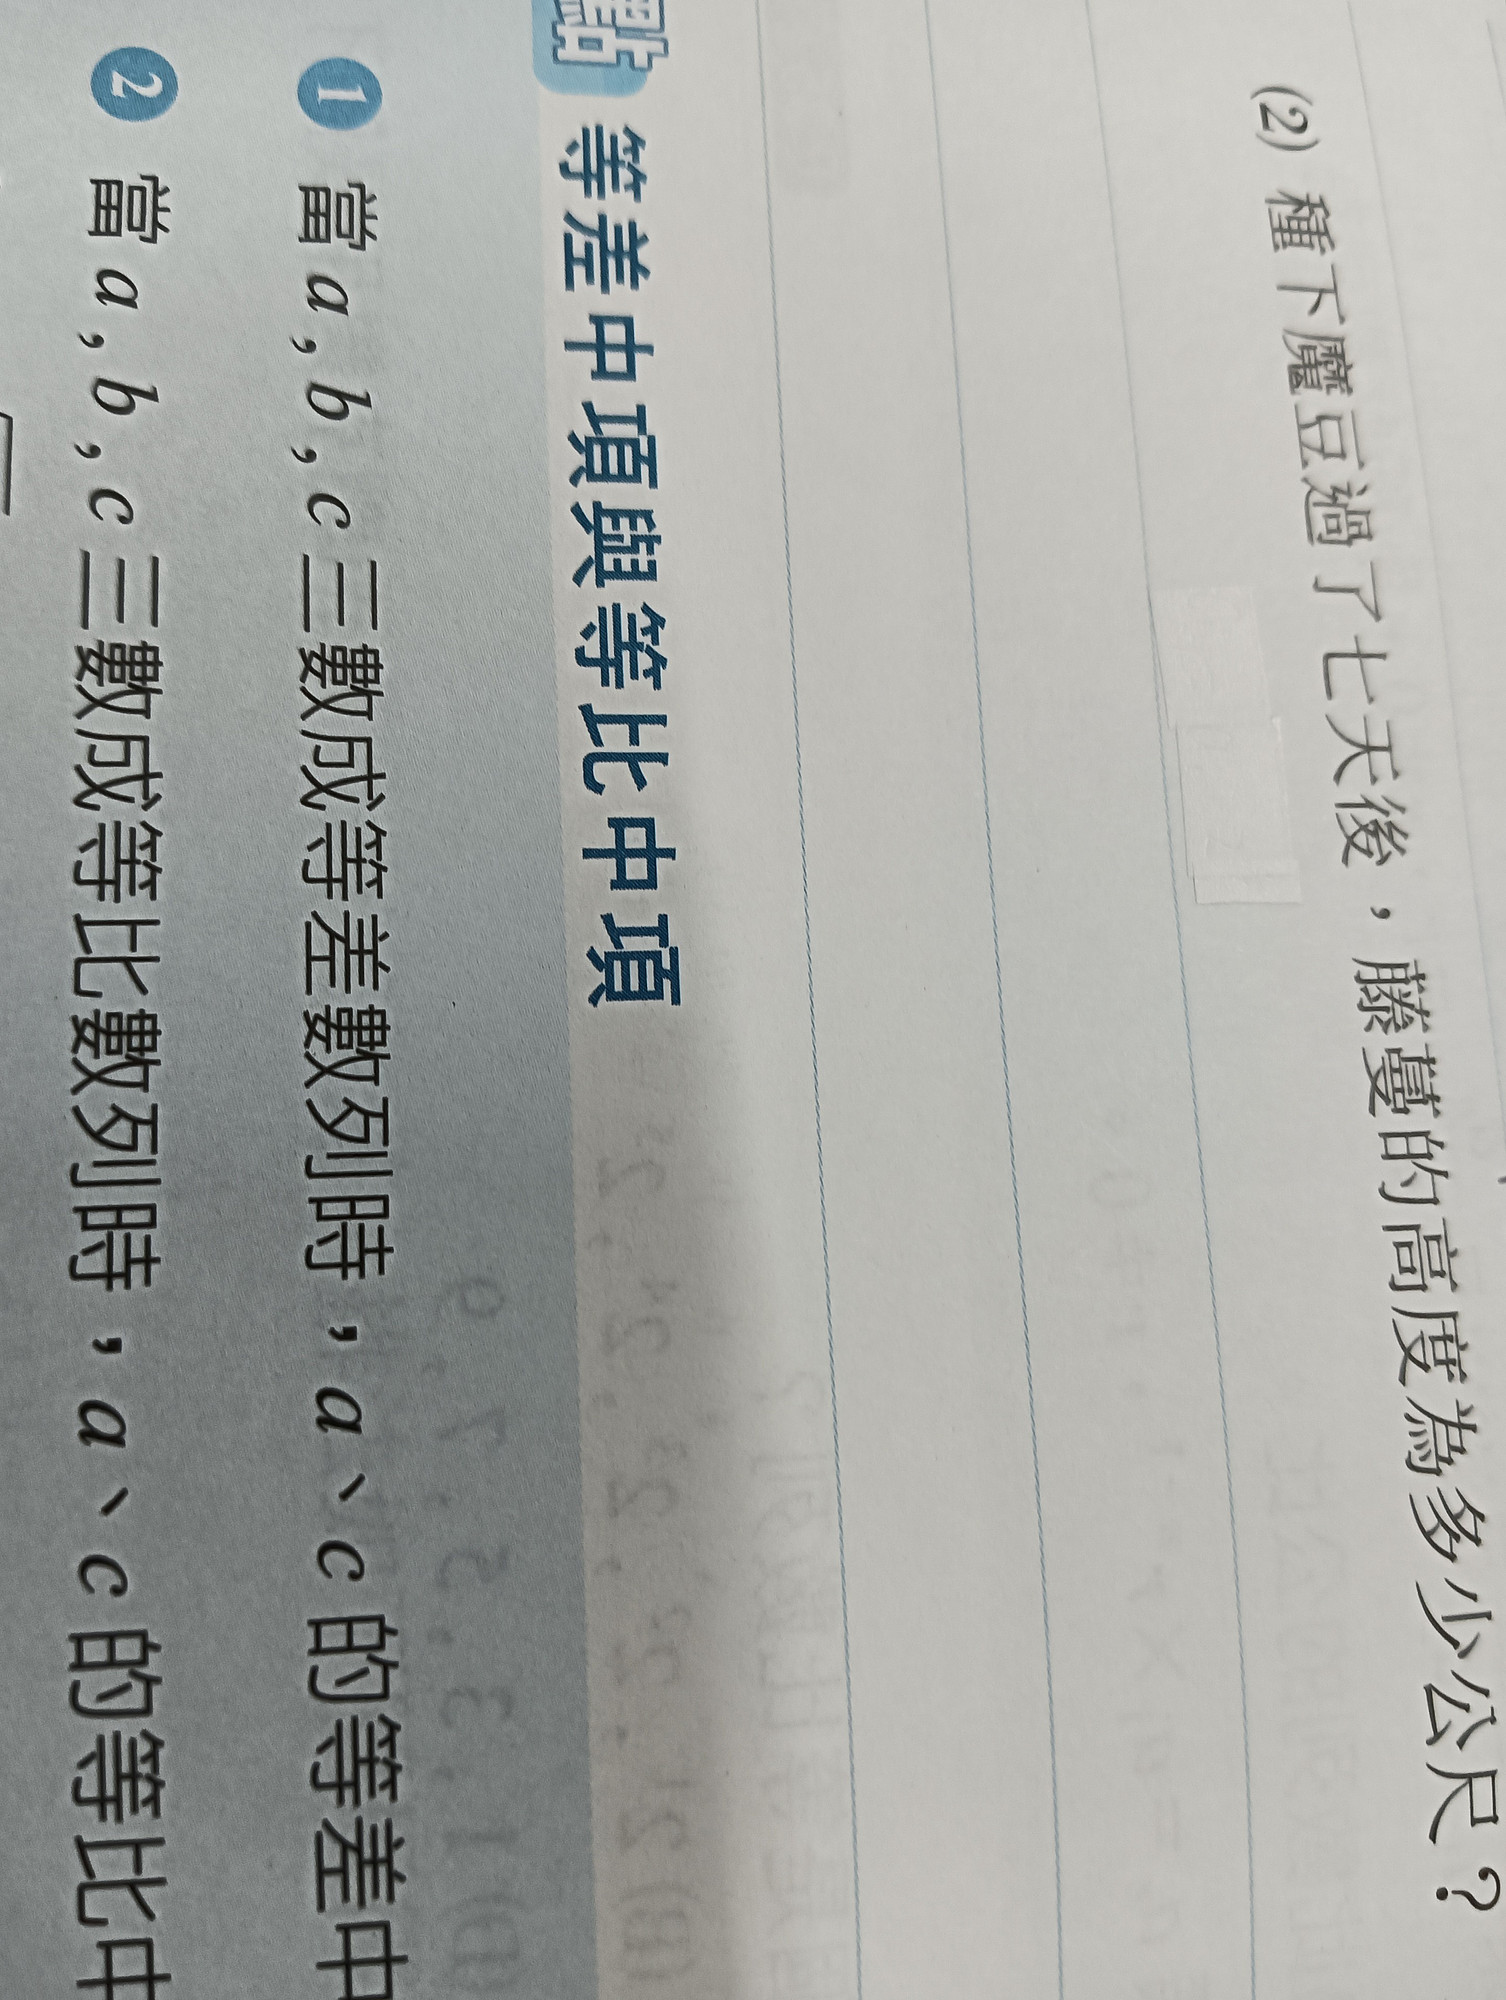 (2) 種下魔豆過了七天後，藤蔓的高度為多少公尺？
點 等差中項與等比中項
1 當 a , b , c 三數成等差數列時，a、c 的等差中
2 當 a , b , c 三數成等比數列時，a、c 的等比中